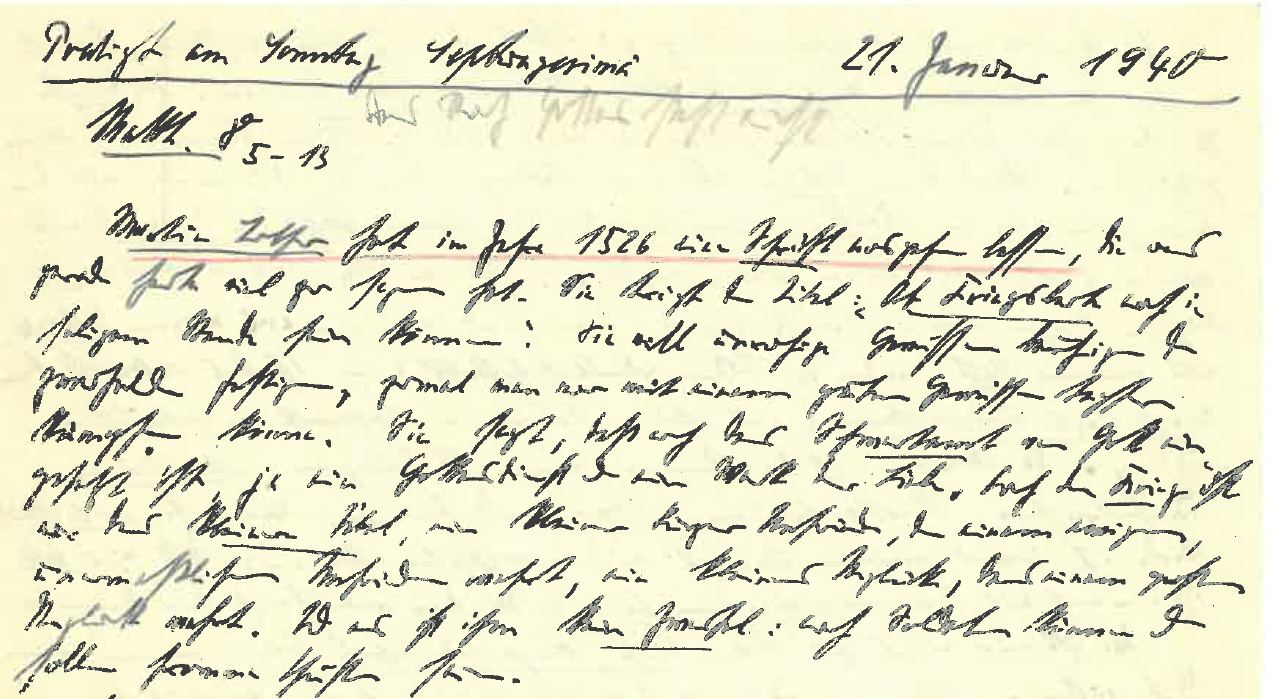 Predigt am Sonntag Septuagesimä 21. Januar 1940
Das Reich Gottes steht nicht
Matth. 8 5-13
Martin Luther hat im Jahre 1526 eine Schrift ausgehen lassen, die uns
gerade heute viel zu sagen hat. Sie trägt den Titel: Ob Kriegsleute auch in
seligem Stande sein können? Sie will unruhige Gewissen beruhigen u
zweifelnde festigen, zumal man nur mit einem guten Gewissen tapfer
kämpfen könne. Sie sagt, dass auch das Schwertamt von Gott ein-
gesetzt ist, ja ein Gottesdienst u ein Werk der Liebe, dass der Krieg ist
nur das kleinere Übel, ein kleiner kurzer Unfrieden, der einem ewigen,
unermesslichen Unfrieden wehrt, ein kleines Unglück, das einem großen
Unglück wehrt. Und es ist ihm kein Zweifel: auch Soldaten können u
sollen fromme Christen sein.